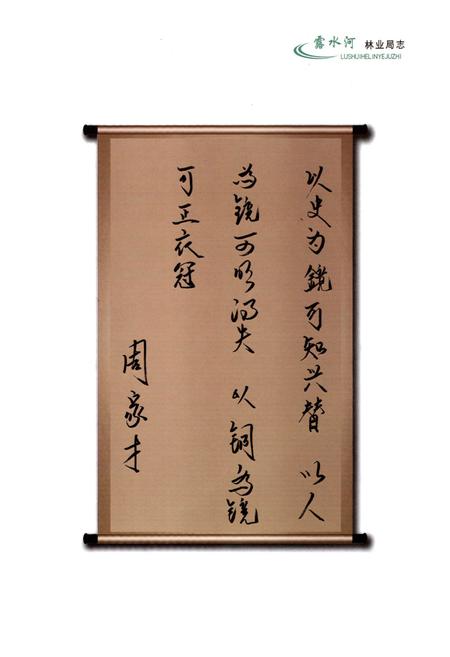 露水河 林业局志
LUSHUIHELINYEJUZHI
以史为鏡可知兴替 以人
为镜可明得失 以铜为镜
可正衣冠
周家才